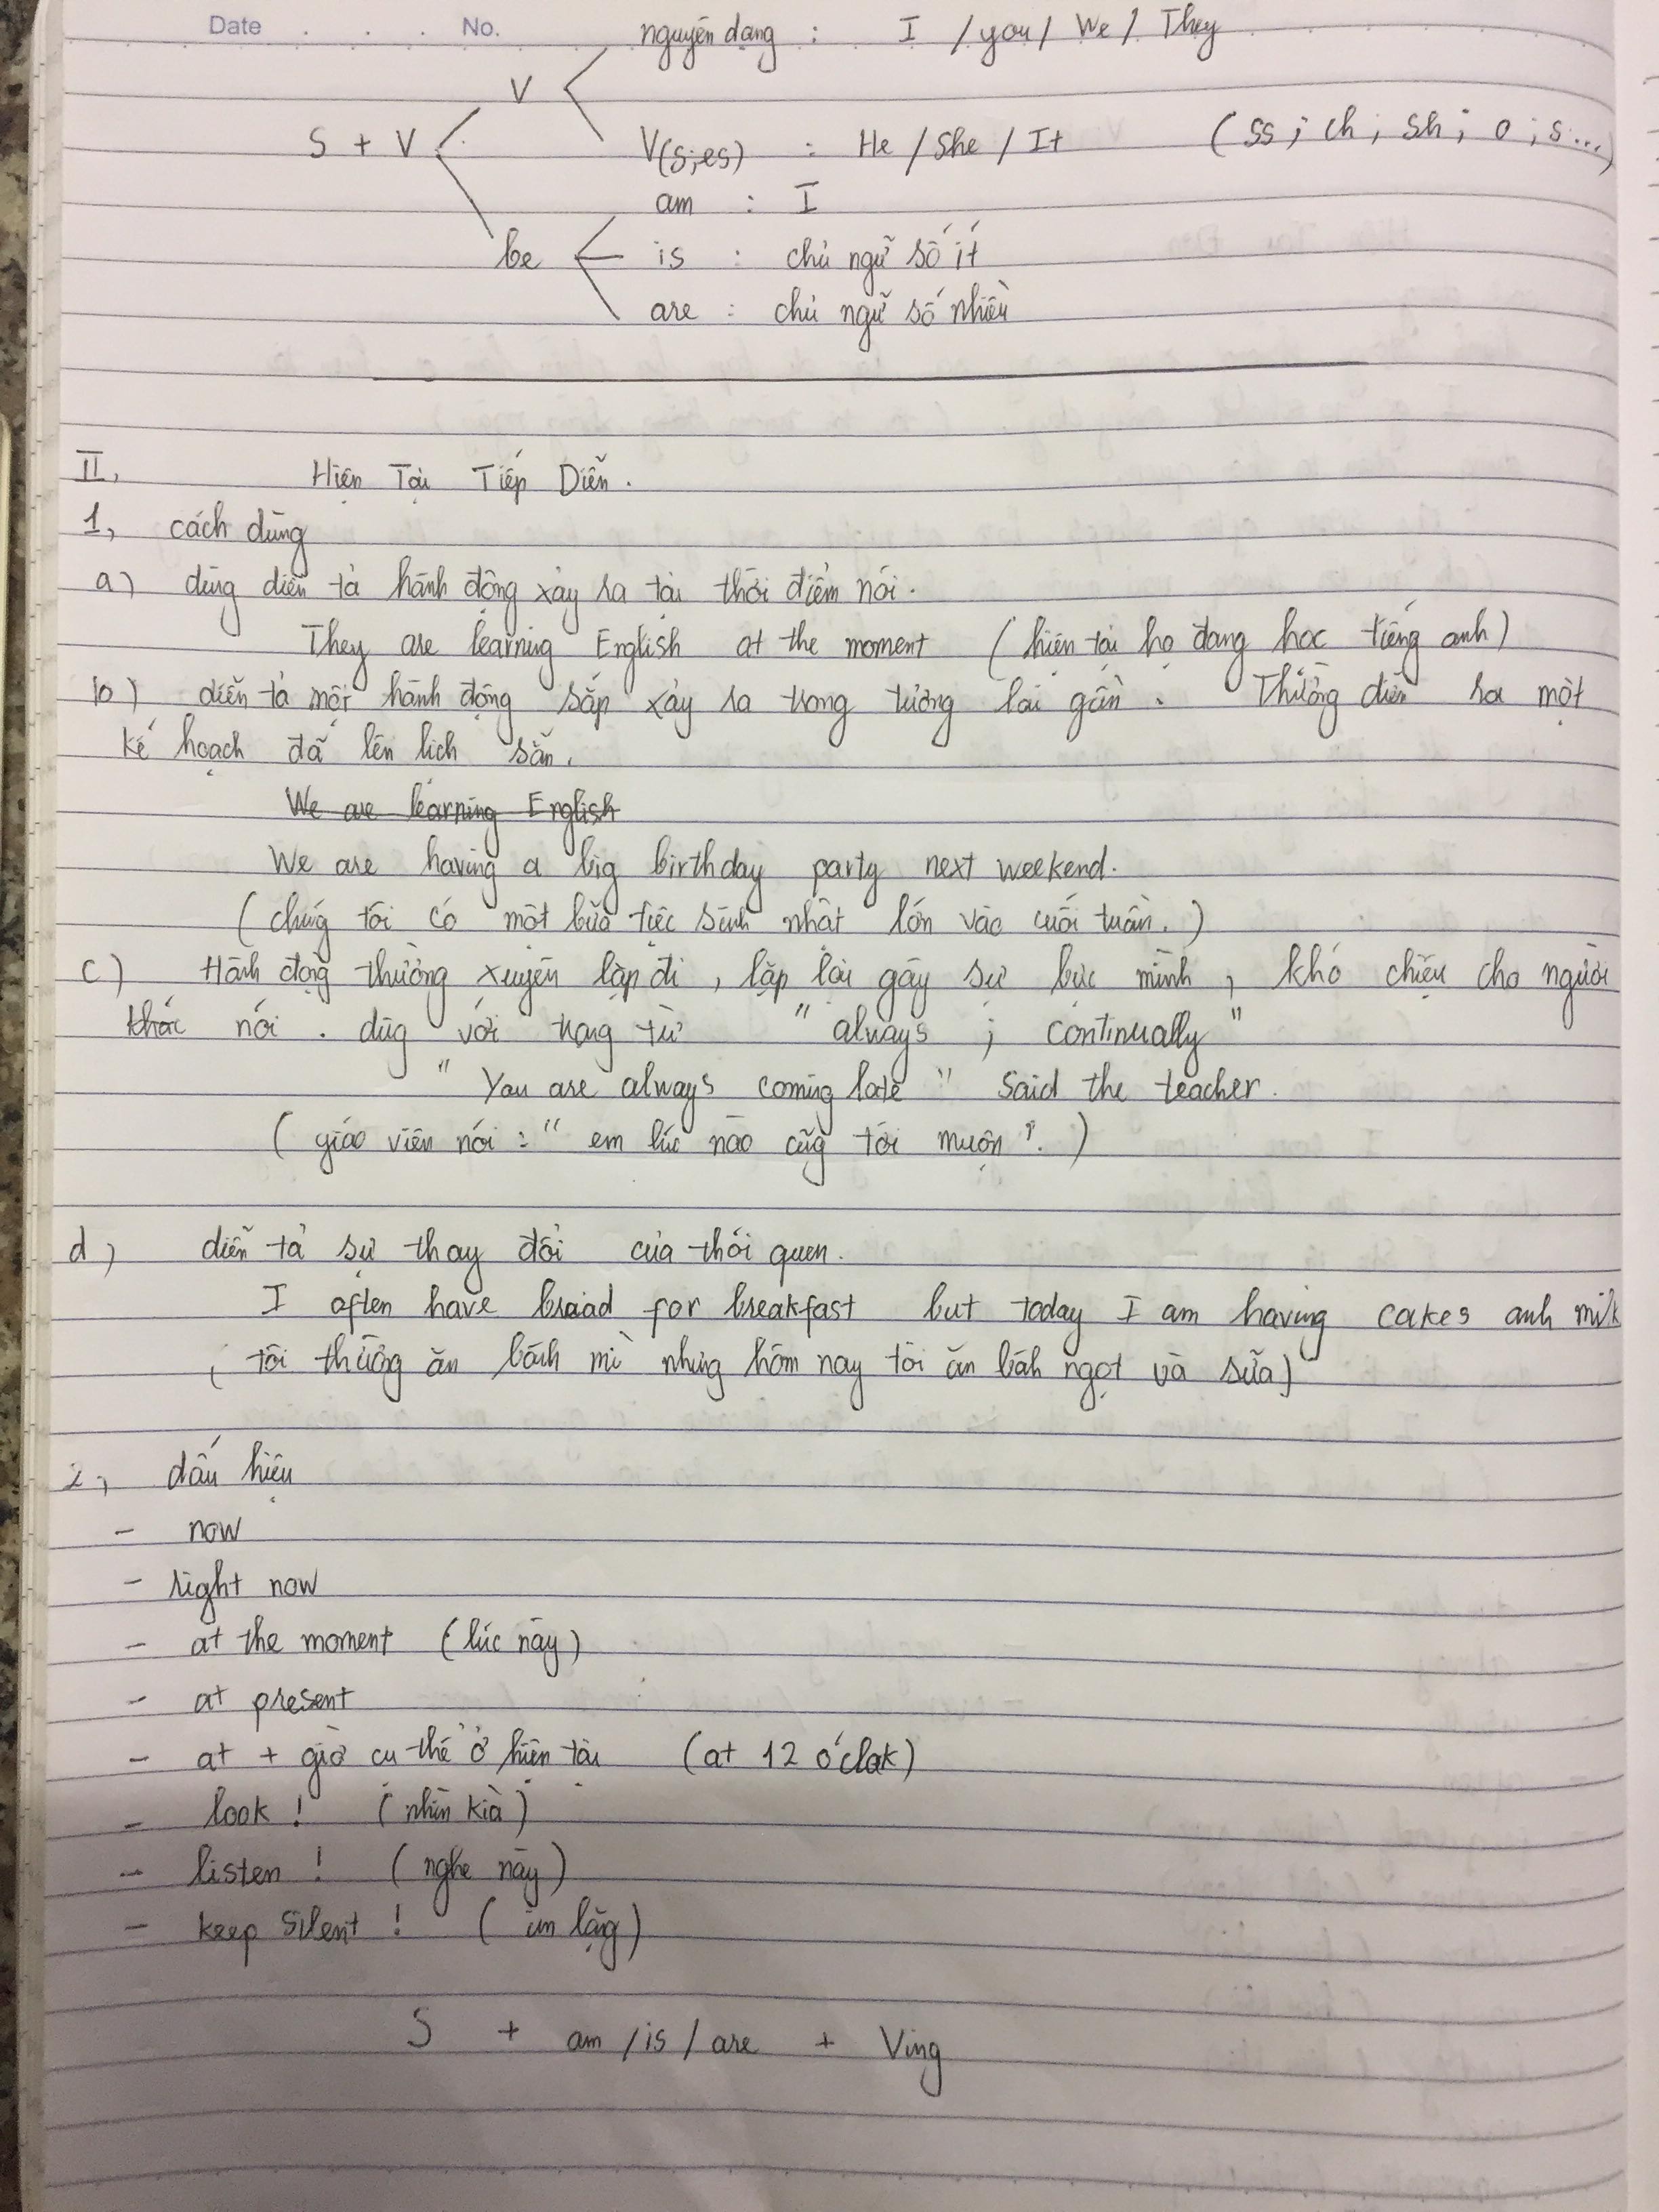 Date No. nguyên dạng : I / you / We / They
V
S + V V(s;es) : He / She / It ( ss ; ch ; sh ; o ; s...)
am : I
be is : chủ ngữ số ít
are : chủ ngữ số nhiều
II, Hiện Tại Tiếp Diễn.
1, cách dùng
a) dùng diễn tả hành động xảy ra tại thời điểm nói.
They are learning English at the moment ( hiện tại họ đang học tiếng anh)
b) diễn tả một hành động sắp xảy ra trong tương lai gần. Thường diễn ra một
kế hoạch đã lên lịch sẵn.
We are learning English
We are having a big birthday party next weekend.
( chúng tôi có một bữa tiệc sinh nhật lớn vào cuối tuần. )
c) Hành động thường xuyên lặp đi, lặp lại gây sự bực mình, khó chịu cho người
khác nói. dùng với trạng từ " always ; continually "
" You are always coming late " said the teacher.
( giáo viên nói : " em lúc nào cũng tới muộn ". )
d) diễn tả sự thay đổi của thói quen.
I often have braad for breakfast but today I am having cakes anh milk
( tôi thường ăn bánh mì nhưng hôm nay tôi ăn bánh ngọt và sữa)
2, dấu hiệu
- now
- right now
- at the moment (lúc này)
- at present
- at + giờ cụ thể ở hiện tại (at 12 o'clok)
- look ! ( nhìn kìa )
- listen ! ( nghe này )
- keep silent ! ( im lặng )
S + am / is / are + Ving